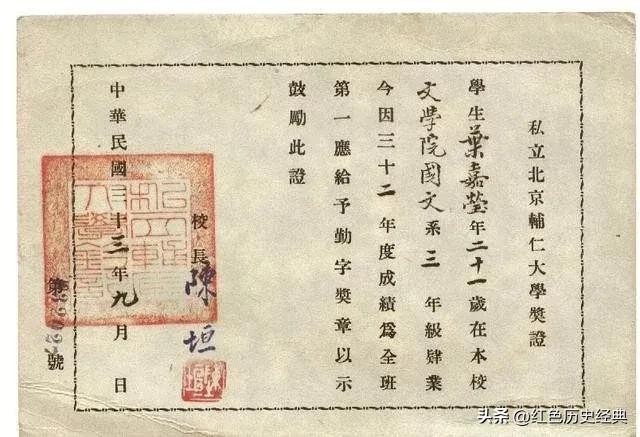 私立北京輔仁大學獎證
學生葉嘉瑩年二十一歲在本校
文學院國文系三年級肄業
今因三十二年度成績爲全班
第一應給予勤字獎章以示
鼓勵此證
校長陳垣
中華民國三十三年九月日
第號
头条 @红色历史经典